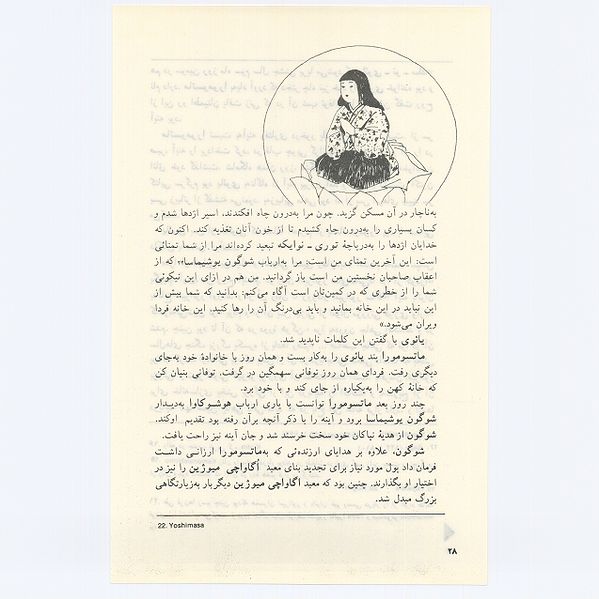 به‌ناچار در آن مسکن گزید. چون مرا به‌درون چاه افکندند، اسیر اژدها شدم و
کسان بسیاری را به‌درون چاه کشیدم تا از خون آنان تغذیه کند. اکنون که
خدایان اژدها را به‌دریاچهٔ توری ـ نوایکه تبعید کرده‌اند مرا از شما تمنائی
است: این آخرین تمنای من است: مرا به‌ارباب شوگون یوشیماسا۲۲ که از
اعقاب صاحبان نخستین من است باز گردانید. من هم در ازای این نیکوئی
شما را از خطری که در کمین‌تان است آگاه می‌کنم: بدانید که شما بیش از
این نباید در این خانه بمانید و باید بی‌درنگ آن را رها کنید. این خانه فردا
ویران می‌شود.»
یائوی با گفتن این کلمات ناپدید شد.
ماتسومورا پند یائوی را به‌کار بست و همان روز با خانوادهٔ خود به‌جای
دیگری رفت. فردای همان روز توفانی سهمگین در گرفت. توفانی بنیان کن
که خانهٔ کهن را به‌یکباره از جای کند و با خود برد.
چند روز بعد ماتسومورا توانست با یاری ارباب هوشوکاوا به‌دیدار
شوگون یوشیماسا برود و آینه را با ذکر آنچه برآن رفته بود تقدیم اوکند.
شوگون از هدیهٔ نیاکان خود سخت خرسند شد و جان آینه نیز راحت یافت.
شوگون، علاوه بر هدایای ارزنده‌ئی که به‌ماتسومورا ارزانی داشت
فرمان داد پول مورد نیاز برای تجدید بنای معبد اُگاواچی میوژین را نیز در
اختیار او بگذارند. چنین بود که معبد اگاواچی میوژین دیگربار به‌زیارتگاهی
بزرگ مبدل شد.
22. Yoshimasa
۲۸